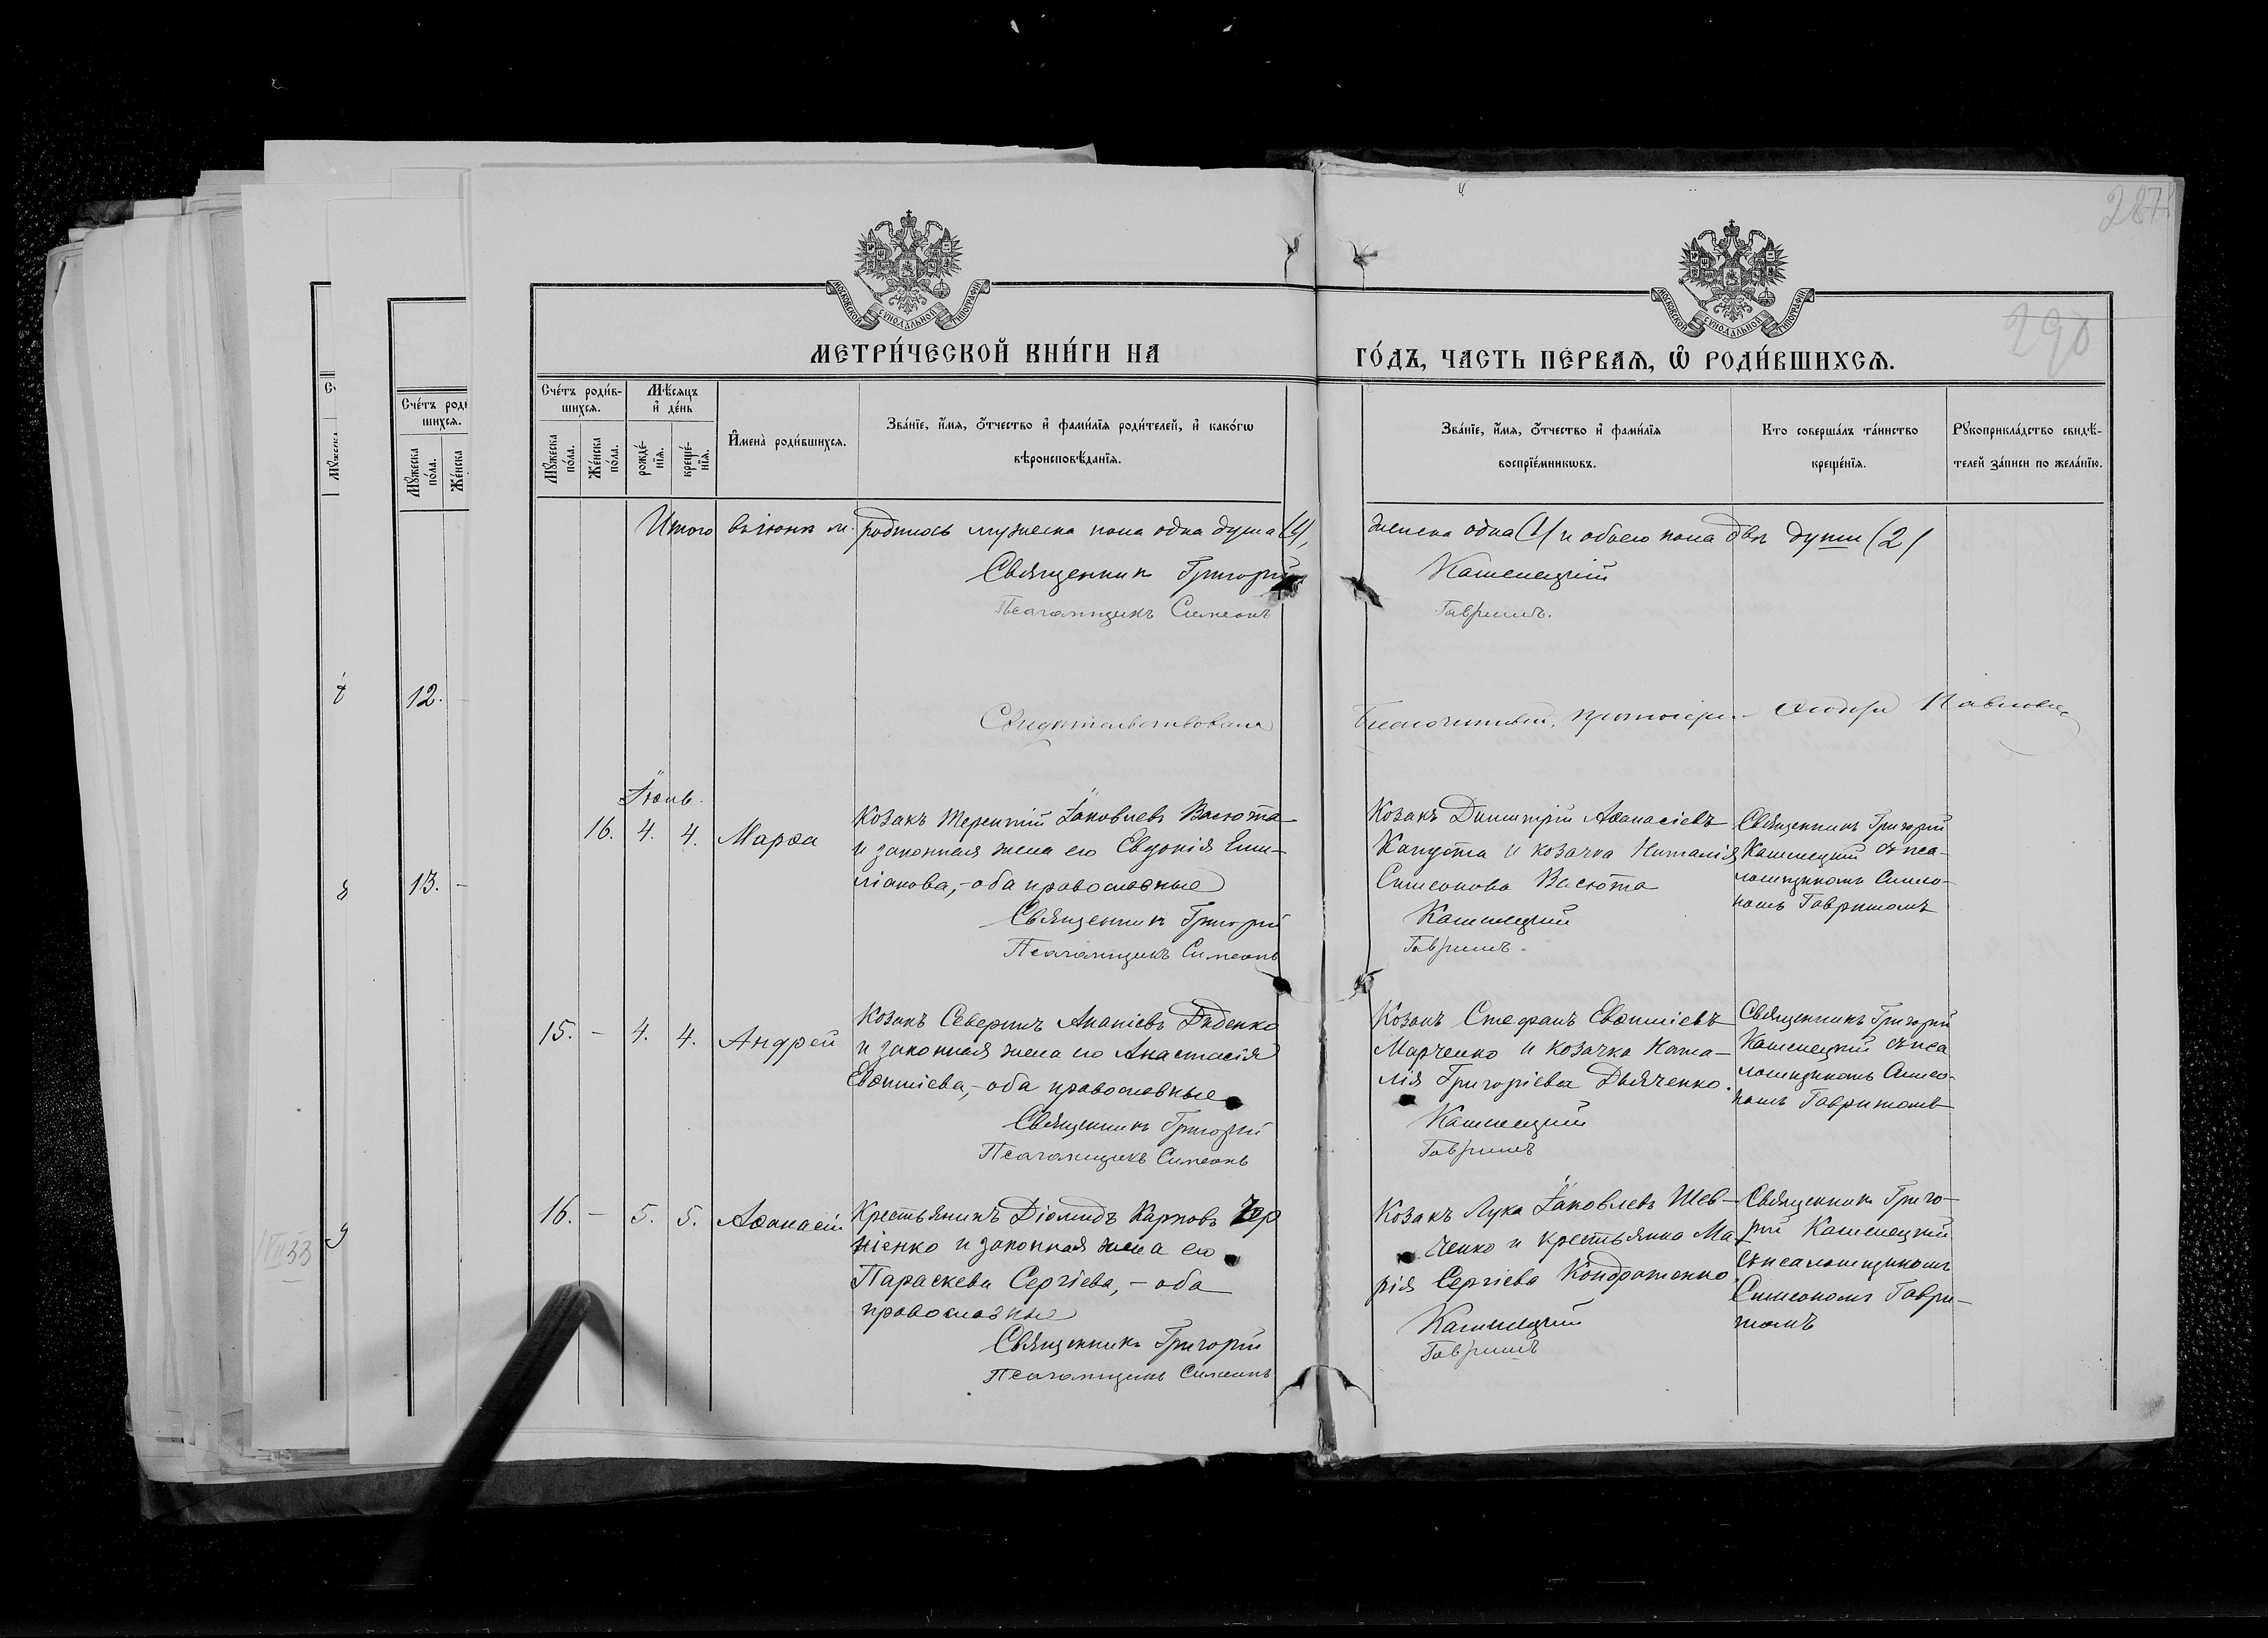 287
290
МОСКОВСКОЙ СѴНОДАЛЬНОЙ ТИПОГРАФІИ
МОСКОВСКОЙ СѴНОДАЛЬНОЙ ТИПОГРАФІИ
МЕТРИ́ЧЕСКОЙ КНИ́ГИ НА
ГО́ДЪ, ЧАСТЬ ПЕ́РВАѦ, Ѡ РОДИ́ВШИХСѦ.
Сче́тъ роди́в-
шихсѧ.
Мꙋ́жеска
по́ла.
Же́нска
по́ла.
Мѣ́сѧцъ
и҆ де́нь
рожде́-
нїѧ.
креще́-
нїѧ.
И҆мена̀ роди́вшихсѧ.
Зва́нїе, и҆́мѧ, ѻ҆́тчество и҆ фами́лїѧ роди́телей, и҆ како́гѡ
вѣроисповѣ́данїѧ.
Зва́нїе, и҆́мѧ, ѻ҆́тчество и҆ фами́лїѧ
воспрїе́мникѡвъ.
Кто соверша́лъ та́инство
креще́нїѧ.
Рꙋкоприкла́дство свидѣ́-
телей за́писи по жела́нїю.
Итого въ іюнѣ м. родилось мужеска пола одна душа (1),
женска одна (1) и обоего пола двѣ души (2)
Священникъ Григорій Каменецкій
Псаломщикъ Симеонъ Гавришъ.
Свидѣтельствовалъ
Благочинный, протоіерей
Іюль.
16. 4. 4. Марѳа
Козакъ Терентій Іаковлевъ Васюта
и законная жена его Евдокія Еми-
ліанова, - оба православные
Священникъ Григорій
Псаломщикъ Симеонъ
Козакъ Димитрій Аѳанасіевъ
Капуста и козачка Наталія
Симеонова Васюта
Каменецкій
Гавришъ.
Священникъ Григорій
Каменецкій съ пса-
ломщикомъ Симео-
номъ Гавришомъ
15. - 4. 4. Андрей
Козакъ Северинъ Ананіевъ Дѣденко
и законная жена его Анастасія
Евѳиміева, - оба православные
Священникъ Григорій
Псаломщикъ Симеонъ
Козакъ Стефанъ Евѳиміевъ
Марченко и козачка Ната-
лія Григоріева Дьяченко.
Каменецкій
Гавришъ
Священникъ Григорій
Каменецкій съ пса
ломщикомъ Симео-
номъ Гавришомъ
16. - 5. 5. Аѳанасій
Крестьянинъ Діомидъ Карповъ Чер
ніенко и законная жена его
Параскева Сергіева, - оба
православные
Священникъ Григорій
Псаломщикъ Симеонъ
Козакъ Лука Іаковлевъ Шев-
ченко и крестьянка Ма-
рія Сергіева Кондратенко
Каменецкій
Гавришъ
Священникъ Григо-
рій Каменецкій
съ псаломщикомъ
Симеономъ Гаври-
шомъ
Сче́тъ роди́
шихсѧ.
Мꙋ́жеска
по́ла.
Же́нска
12.
13.
Мꙋ́жеска